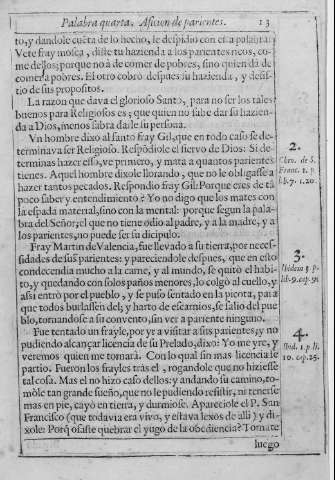 Palabra quarta. Aficion de parientes. 13
to, y dandole cuēta de lo hecho, le despidio con esta palabra:
Vete fray mosca, diste tu hazienda a los parientes ricos, co-
me dellos; porque no à de comer de pobres, sino quien dà de
comer a pobres. El otro cobrò despues su hazienda, y desis-
tio de sus propositos.
La razon que dava el glorioso Santo, para no ser los tales
buenos para Religiosos es; que quien no sabe dar su hazien-
da a Dios, menos sabra darle su persona.
Vn hombre dixo al santo fray Gil, que en todo caso se de-
terminava ser Religioso. Respōdiole el siervo de Dios: Si de-
terminas hazer esso, ve primero, y mata a quantos parientes
tienes. Aquel hombre dixole llorando, que no le obligasse a
hazer tantos pecados. Respondio fray Gil: Porque eres de tā
poco saber y entendimiento? Yo no digo que los mates con
la espada material, sino con la mental: porque segun la pala-
bra del Señor, el que no tiene odio al padre, y a la madre, y a
los parientes, no puede ser su dicipulo.
Fray Martin de Valencia, fue llevado a su tierra, por neces-
sidades de sus parientes: y pareciendole despues, que en esto
condecendia mucho a la carne, y al mundo, se quitò el habi-
to, y quedando con solos paños menores, lo colgò al cuello, y
assi entrò por el pueblo, y se puso sentado en la picota, para
que todos burlassen del; y harto de escarnios, se salio del pue
blo, tornandose a su convento, sin ver a pariente ninguno.
Fue tentado un frayle, por yr a visitar a sus parientes, y no
pudiendo alcançar licencia de su Prelado, dixo: Yo me yre, y
veremos quien me tomarà. Con lo qual sin mas licencia se
partio. Fueron los frayles tràs el, rogandole que no hiziesse
tal cosa. Mas el no hizo caso dellos: y andando su camino, to-
mòle tan grande sueño, que no le pudiendo resistir, ni tenerse
mas en pie, cayò en tierra, y durmiose. Apareciole el P. San
Francisco (que todavia era vivo, y estava lexos de alli) y di-
xole: Porq̄ osaste quebrar el yugo de la obediencia? Tomate
luego
2.
Chro. de S.
Franc. 1. p.
lib. 7. c. 20.
3.
4.
Ibid. 1. p. li.
10. cap. 25.